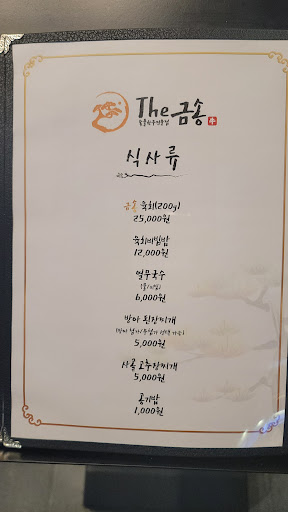 The 금송
식사류
금송 육회(200g)
25,000원
육회비빔밥
12,000원
열무국수
(물/비빔)
6,000원
방아 된장찌개
5,000원
사골 고추장찌개
5,000원
공기밥
1,000원